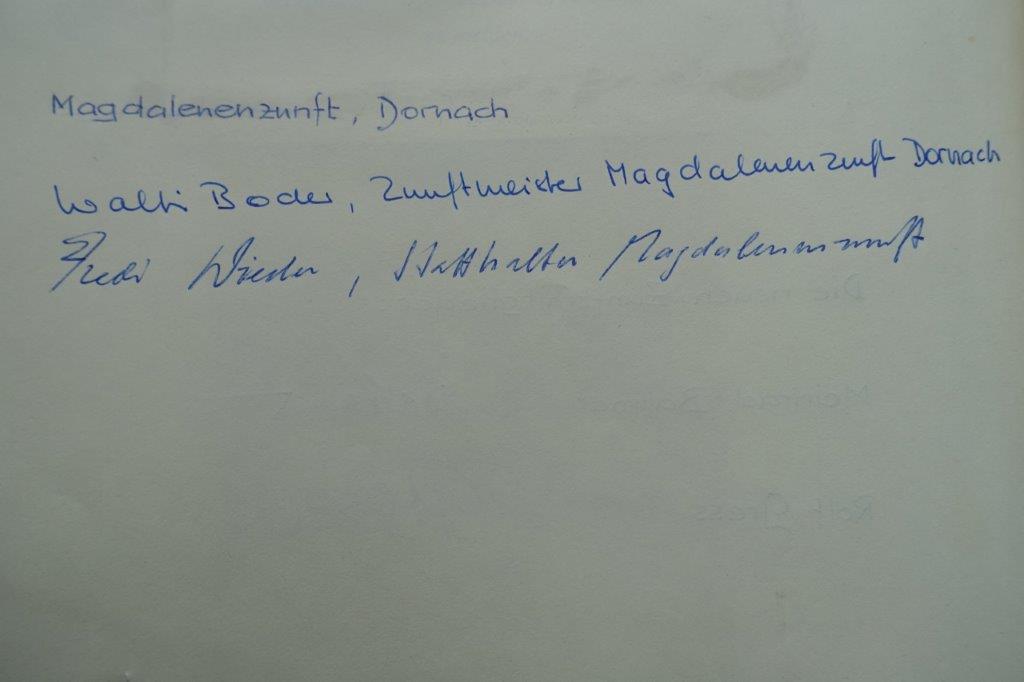 Magdalenenzunft, Dornach
Walti Boder, Zunftmeister Magdalenenzunft Dornach
Fredi Wieder, Statthalter Magdalenenzunft